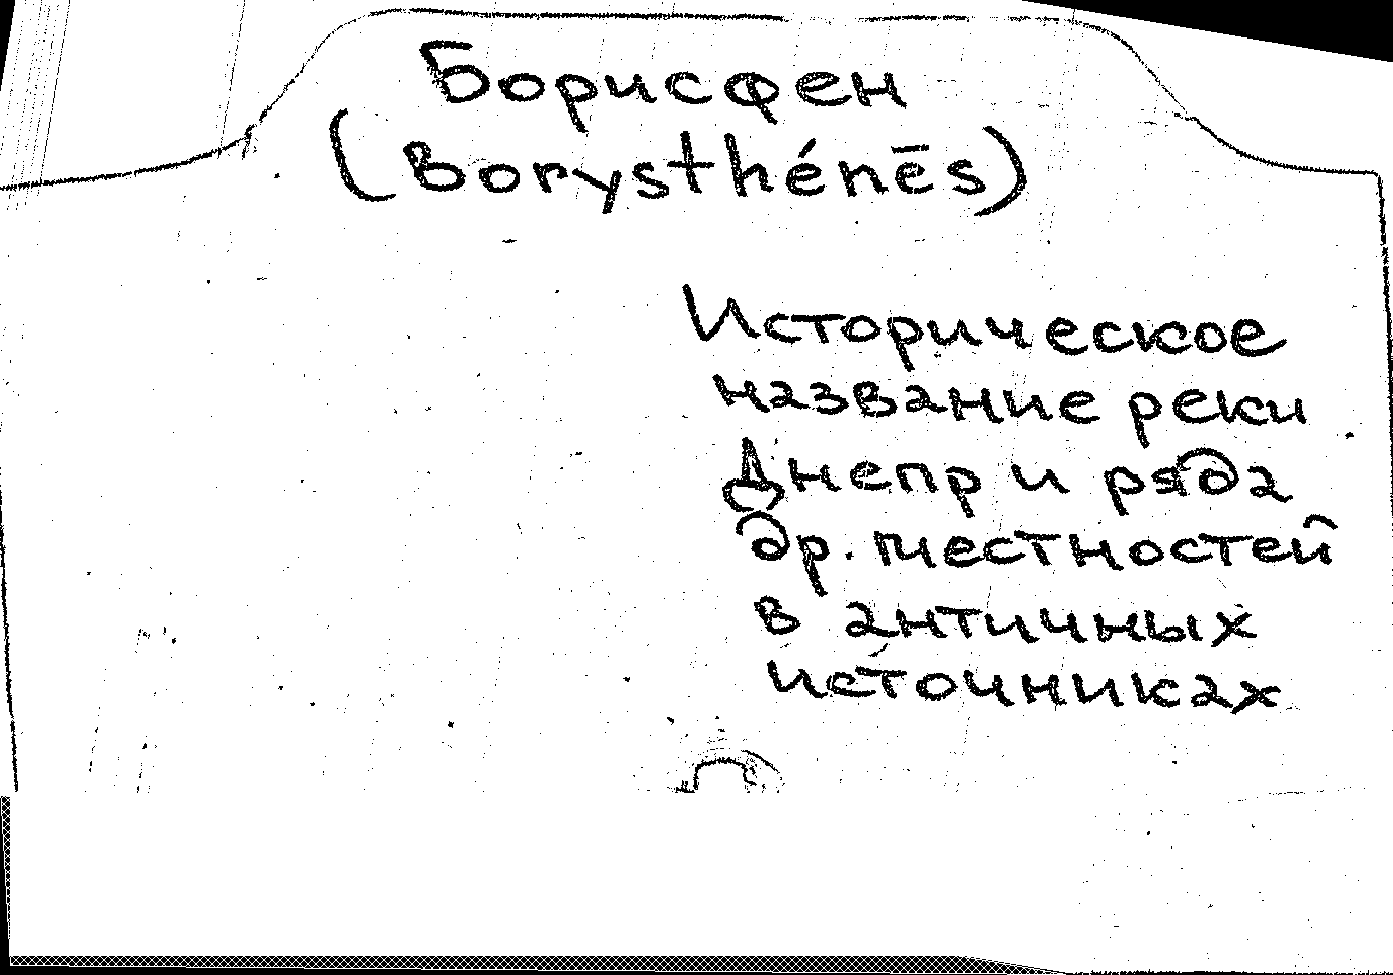 Борисфен
(Borysthénēs)
Историческое
название реки
Днепр и ряда
др. местностей
в античных
источниках